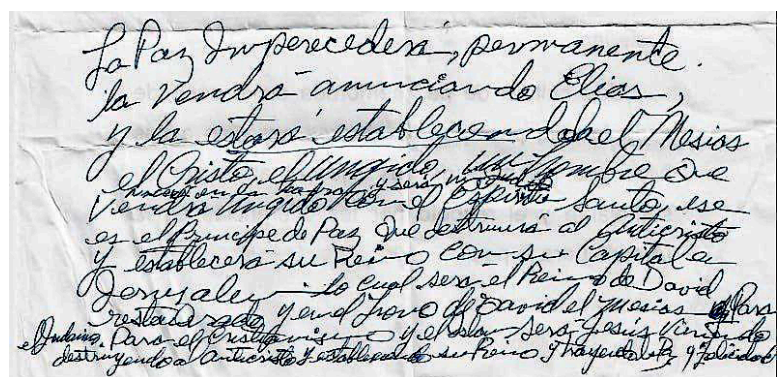 La Paz Imperecedera, permanente.
la Vendrá anunciando Elias,
y la estará estableciendola el Mesias
el Cristo, el Ungido, un hombre que
y será
Vendrá Ungido con el Espíritu Santo, ese
es el Principe de Paz que destruirá al Anticristo
y establecerá su Reino con su Capital en
Jerusalem lo cual será el Reino de David
restaurado y en el trono de David el Mesias Para
el Judaismo. Para el Cristianismo y el Islam será Jesús Viniendo
destruyendo a anticristo y estableciendo su Reino y trayendo la Paz y felicidad